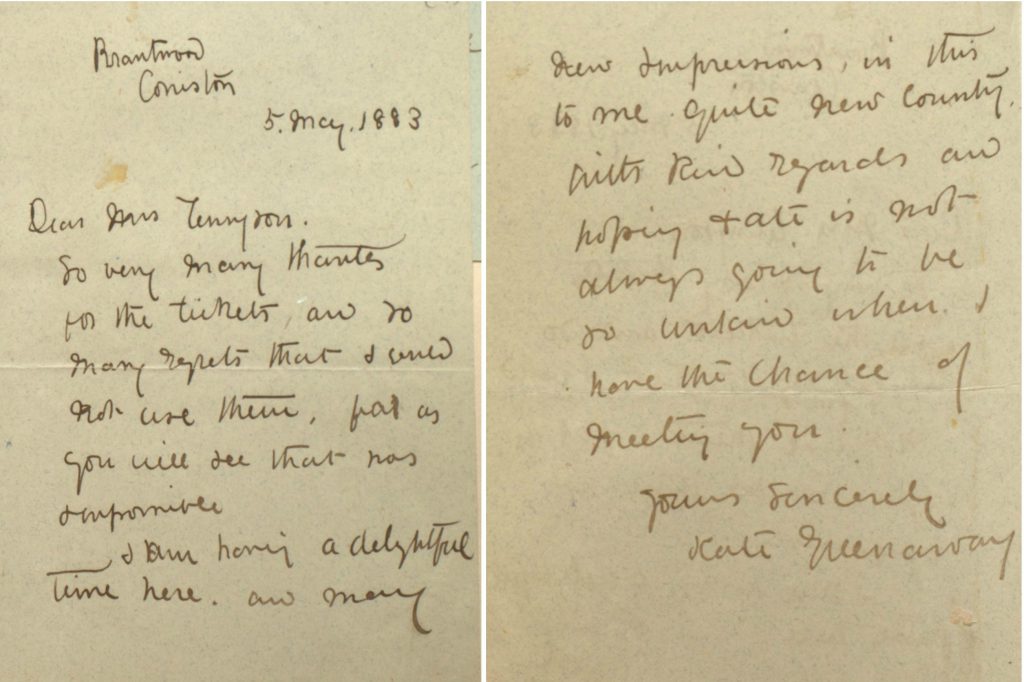 Brantwood
Coniston
5. May. 1883
Dear Mrs Tennyson.
So very many thanks
for the tickets, and so
many regrets that I could
not use them, for as
you will see that was
impossible
I am having a delightful
time here. and many
new impressions, in this
to me quite new county.
With kind regards and
hoping Fate is not
always going to be
so unkind when I
have the chance of
meeting you.
Yours sincerely
Kate Greenaway